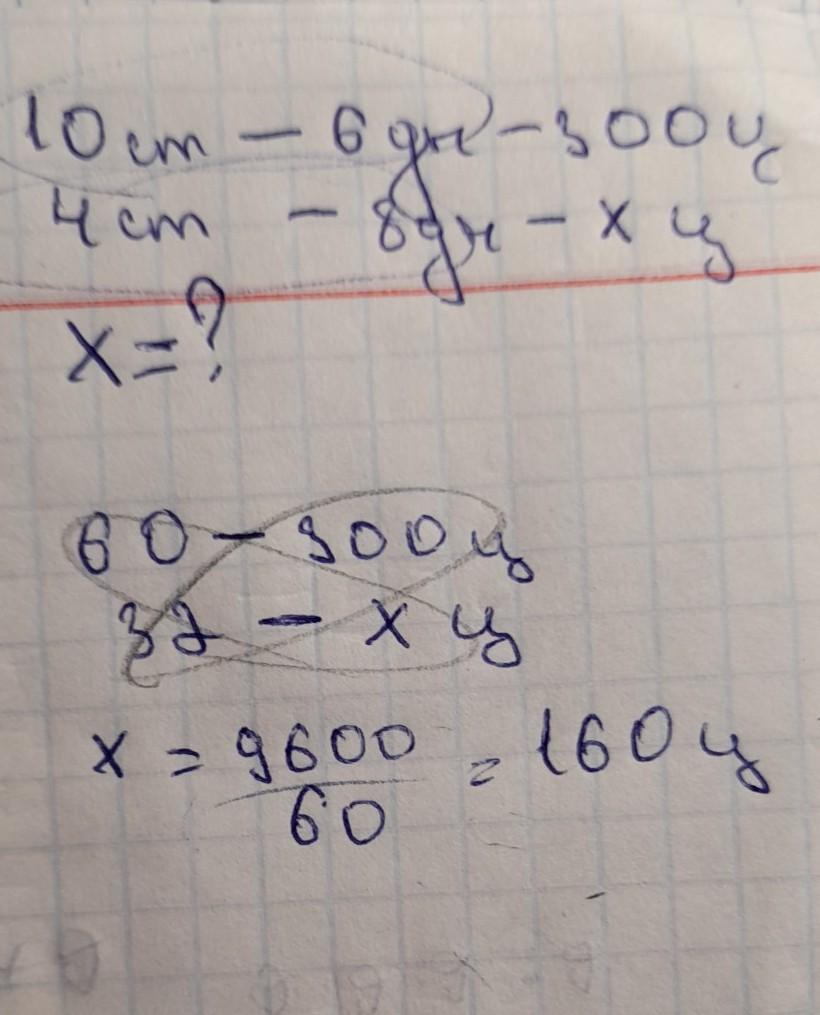 10 ст – 6 дн – 300 ц
4 ст – 8 дн – х ц
х = ?
60 – 300 ц
32 – х ц
х = 9600/60 = 160 ц